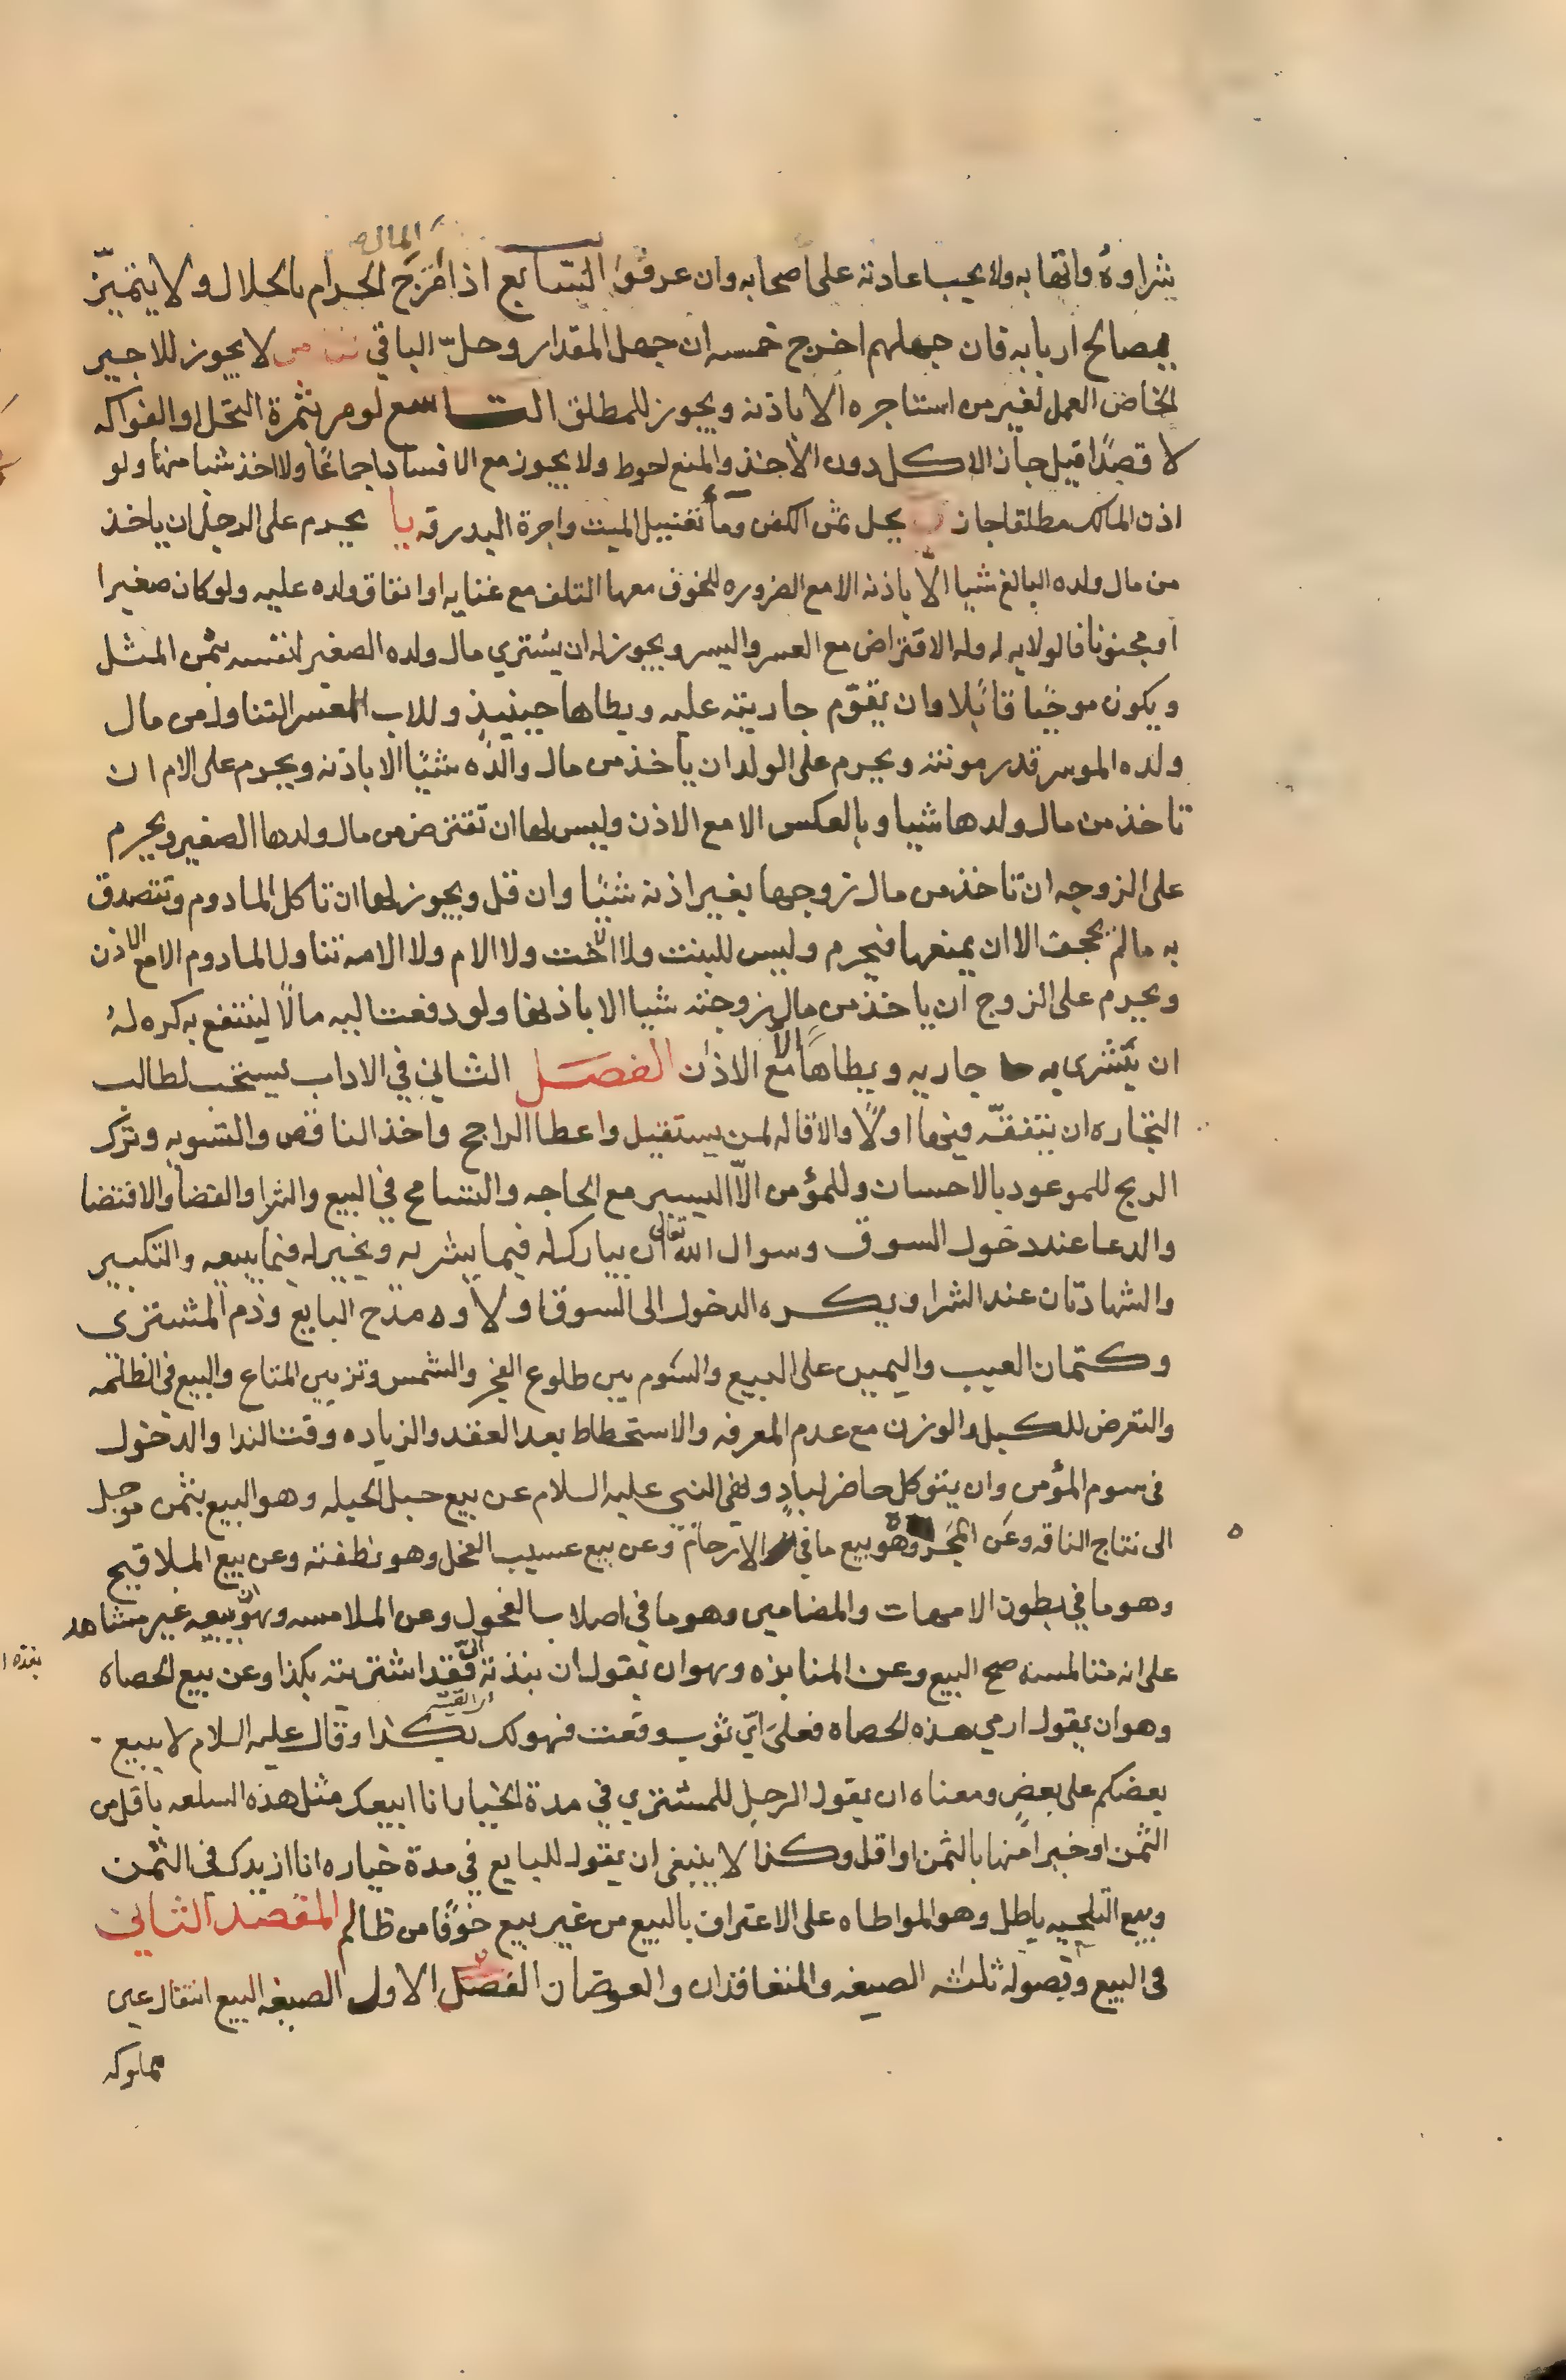 شراوهُ واتهابه ولا يجب اعادته على اصحابه وان عرفوا السّابع اذا امتزج المال الحرام بالحلال ولا يتميّز
يصالح اربابه فان جهلهم اخرج خمسه ان جهل المقدار وحلّ الباقي ثامن لا يجوز للاجير
الخاص العمل لغير من استاجره الا باذنه ويجوز للمطلق التاسع لو مر بثمرة النخل او الفواكه
لا قصدًا قيل جاز الاكل دون الاخذ والمنع احوط ولا يجوز مع الافساد اجماعًا ولا اخذ شيا منها ولو
اذن المالك مطلقا جاز يحل ثمن الكفن وما تغسيل الميت واجرة البدرقه يا يحرم على الرجل ان ياخذ
من مال ولده البالغ شيا الّا باذنه الا مع الضروره المخوف معها التلف مع غنايه او انفاق ولده عليه ولو كان صغيرا
او مجنونا فالولايه له وله الاقتراض مع العسر واليسر ويجوز له ان يشتري مال ولده الصغير لنفسه بثمن المثل
ويكون موجبا قابلا وان يقوّم جاريته عليه ويطاها حينيذ وللاب المعسر التناول من مال
ولده الموسر قدر مونته ويحرم على الولد ان ياخذ من مال والده شيئا الا باذنه ويحرم على الام ان
تاخذ من مال ولدها شيا وبالعكس الا مع الاذن وليس لها ان تقترض من مال ولدها الصغير ويحرم
على الزوجه ان تاخذ من مال زوجها بغير اذنه شيئا وان قل ويجوز لها ان تاكل المادوم وتتصدق
به مالم يجحف الا ان يمنعها فيحرم وليس للبنت ولا الاخت ولا الام ولا الامه تناول المادوم الا مع الاذن
ويحرم على الزوج ان ياخذ من مال زوجته شيا الا باذنها ولو دفعت اليه مالًا لينتفع به كره لهُ
ان يشترى به جاريه ويطاها الا مع الاذن الفصل الثاني في الاداب يستحب لطالب
التجاره ان يتفقّه فيها اولًا والاقاله لمن يستقيل واعطا الراجح واخذ الناقص والتسويه وترك
الربح للموعود بالاحسان وللمؤمن الّا اليسير مع الحاجه والتسامح في البيع والشرا والقضا والاقتضا
والدعا عند دخول السوق وسوال الله تعالى ان يبارك له فيما يشتريه ويخير له فيما يبيعه والتكبير
والشهادتان عند الشرا ويكره الدخول الى السوق اولا وه مدح البايع وذم المشترى
وكتمان العيب واليمين على البيع والسوم بين طلوع الفجر والشمس وتزيين المتاع والبيع في الظلمه
والتعرض للكيل والوزن مع عدم المعرفه والاستحطاط بعد العقد والزياده وقت الندا والدخول
فى سوم المؤمن وان يتوكل حاضر لبادٍ ونهى النبي عليه السلام عن بيع حبل الحبله وهو البيع بثمن موجل
الى نتاج الناقه وعن المجر وهو بيع ما في الارحام وعن بيع عسيب الفحل وهو نطفته وعن بيع الملاقيح
وهو ما في بطون الامهات والمضامين وهو ما في اصلاب الفحول وعن الملامسه وهو ان يبيعه غير مشاهد
على انه متى لمسه صح البيع وعن المنابذه وهو ان يقول ان نبذته الىّ فقد اشتريته بكذا وعن بيع الحصاه
وهو ان يقول ارمي هذه الحصاه فعلى ايّ ثوب وقعت فهو لك بكذا وقال عليه السلام لا يبيع
بعضكم على بعض ومعناه ان يقول الرجل للمشتري في مدة الخيار انا ابيعك مثل هذه السلعه باقل من
الثمن او خيرا منها بالثمن او اقل وكذا لا ينبغى ان يقول للبايع في مدة خياره انا ازيدك فى الثمن
وبيع التلجيه باطل وهو المواطاه على الاعتراف بالبيع من غير بيع خوفًا من ظالم المقصد الثاني
فى البيع وفصوله ثلثه الصيغه والمتعاقدان والعوضان الفصل الاول الصيغه البيع انتقال عين
مملوكه